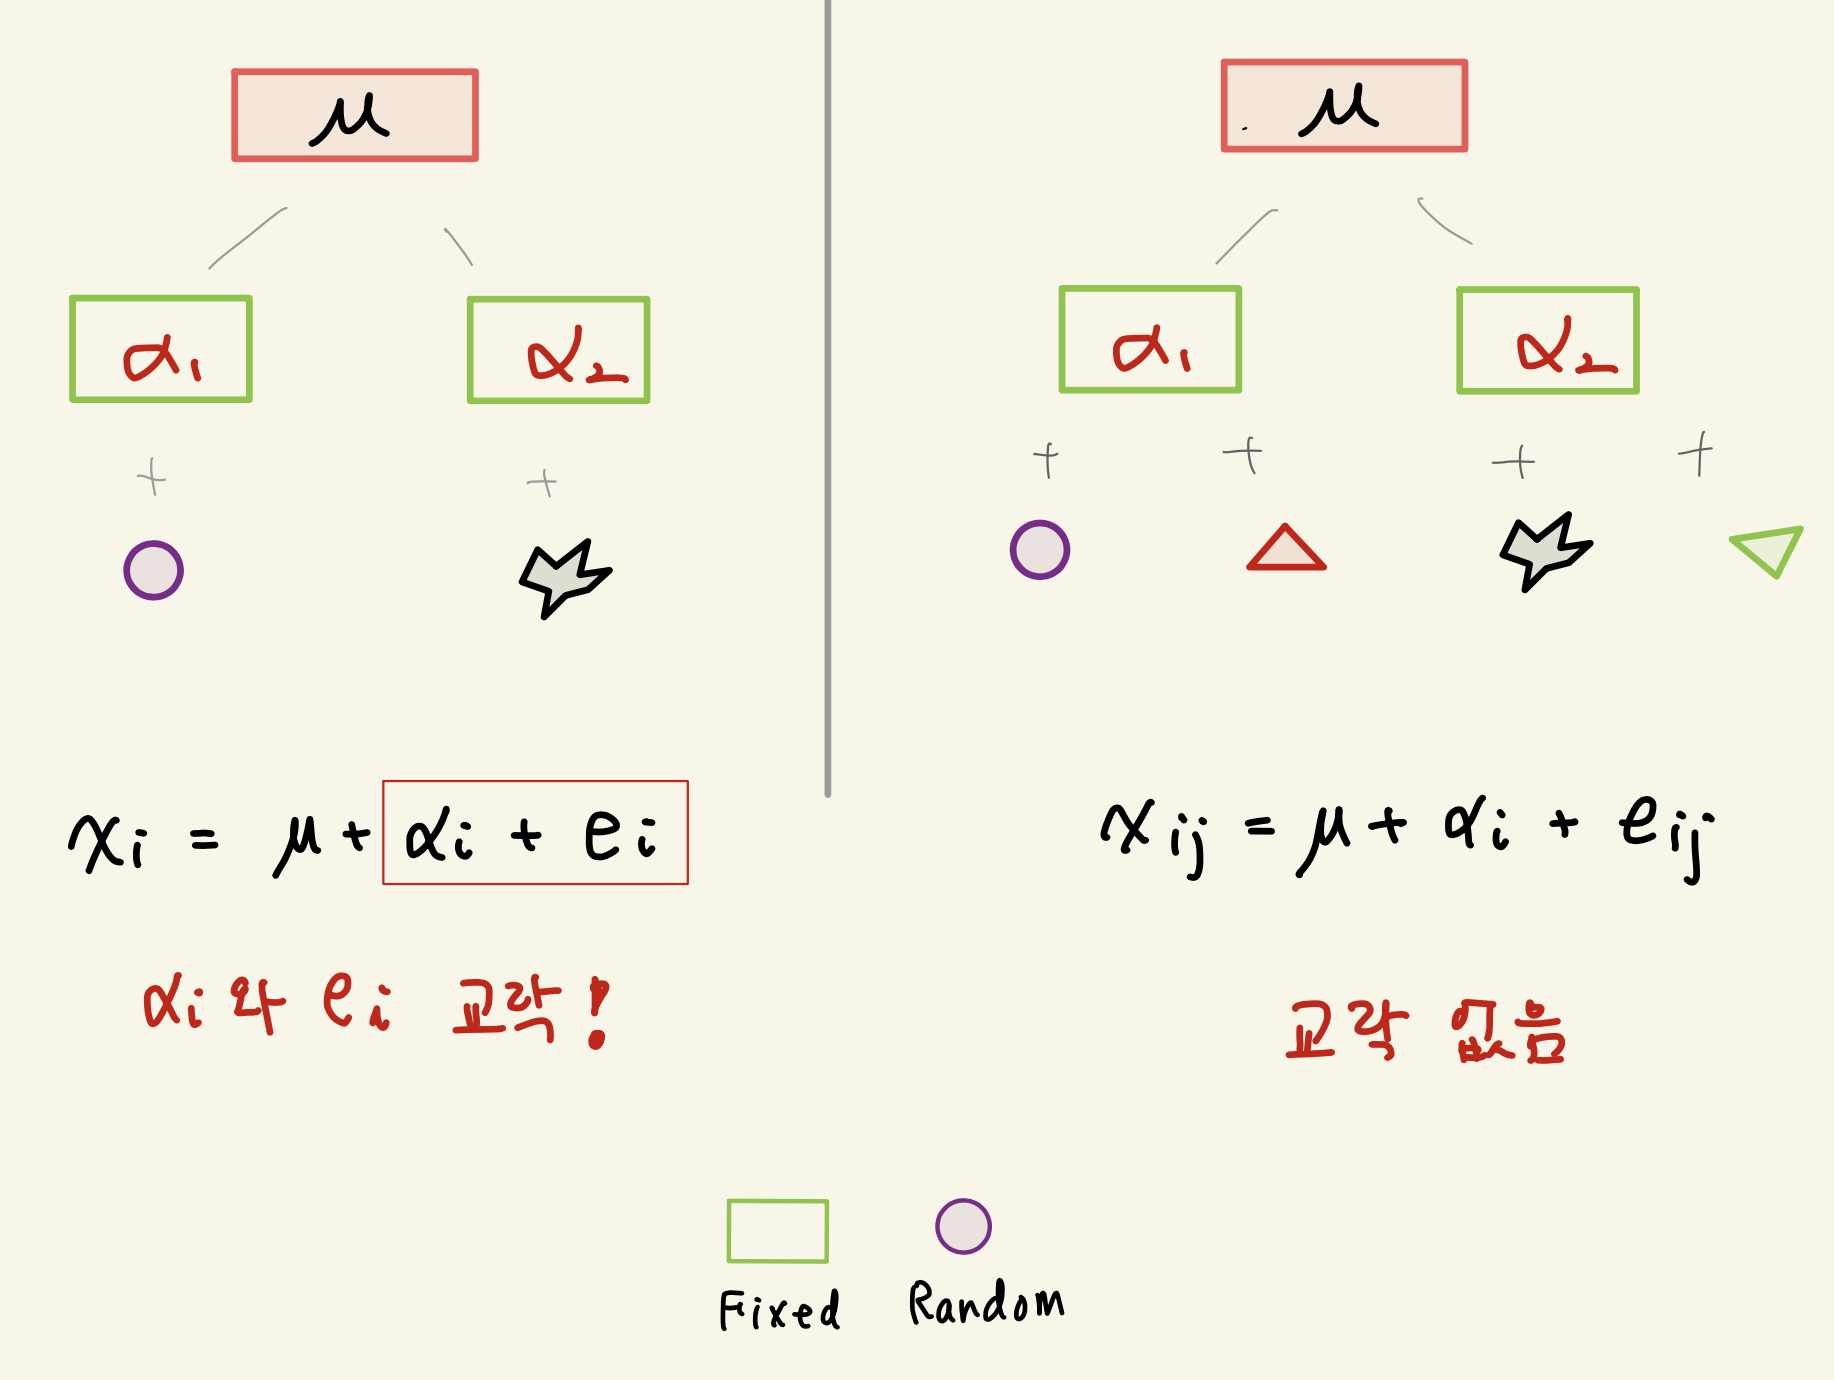 μ
α₁
α₂
+
+
xᵢ = μ + αᵢ + eᵢ
αᵢ와 eᵢ 교락!
μ
α₁
α₂
+
+
+
+
xᵢⱼ = μ + αᵢ + eᵢⱼ
교락 없음
Fixed
Random